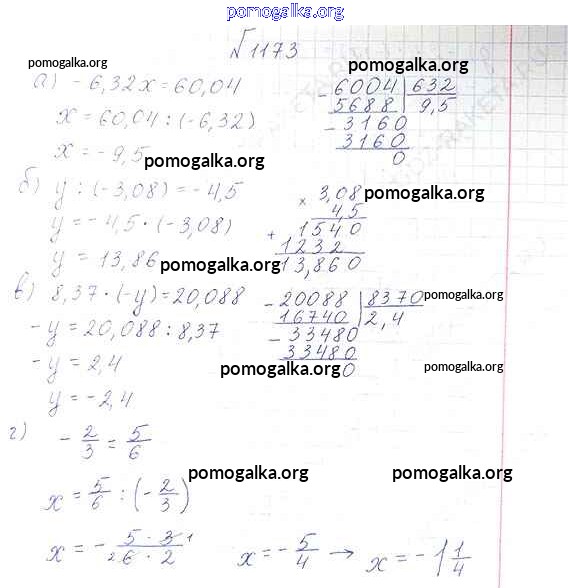 pomogalka.org
№1173
pomogalka.org
pomogalka.org
а) -6,32x = 60,04
x = 60,04 : (-6,32)
x = -9,5
- 6004 | 632
5688 | 9,5
- 3160
3160
0
pomogalka.org
pomogalka.org
б) y : (-3,08) = -4,5
y = -4,5 · (-3,08)
y = 13,86
× 3,08
4,5
+ 1540
1232
13,860
pomogalka.org
pomogalka.org
в) 8,37 · (-y) = 20,088
-y = 20,088 : 8,37
-y = 2,4
y = -2,4
- 20088 | 8370
16740 | 2,4
- 33480
33480
0
pomogalka.org
pomogalka.org
г) -2/3 = 5/6
pomogalka.org
pomogalka.org
x = 5/6 : (-2/3)
x = - 5 · 3 1 / 2 6 · 2
x = -5/4 → x = -1 1/4